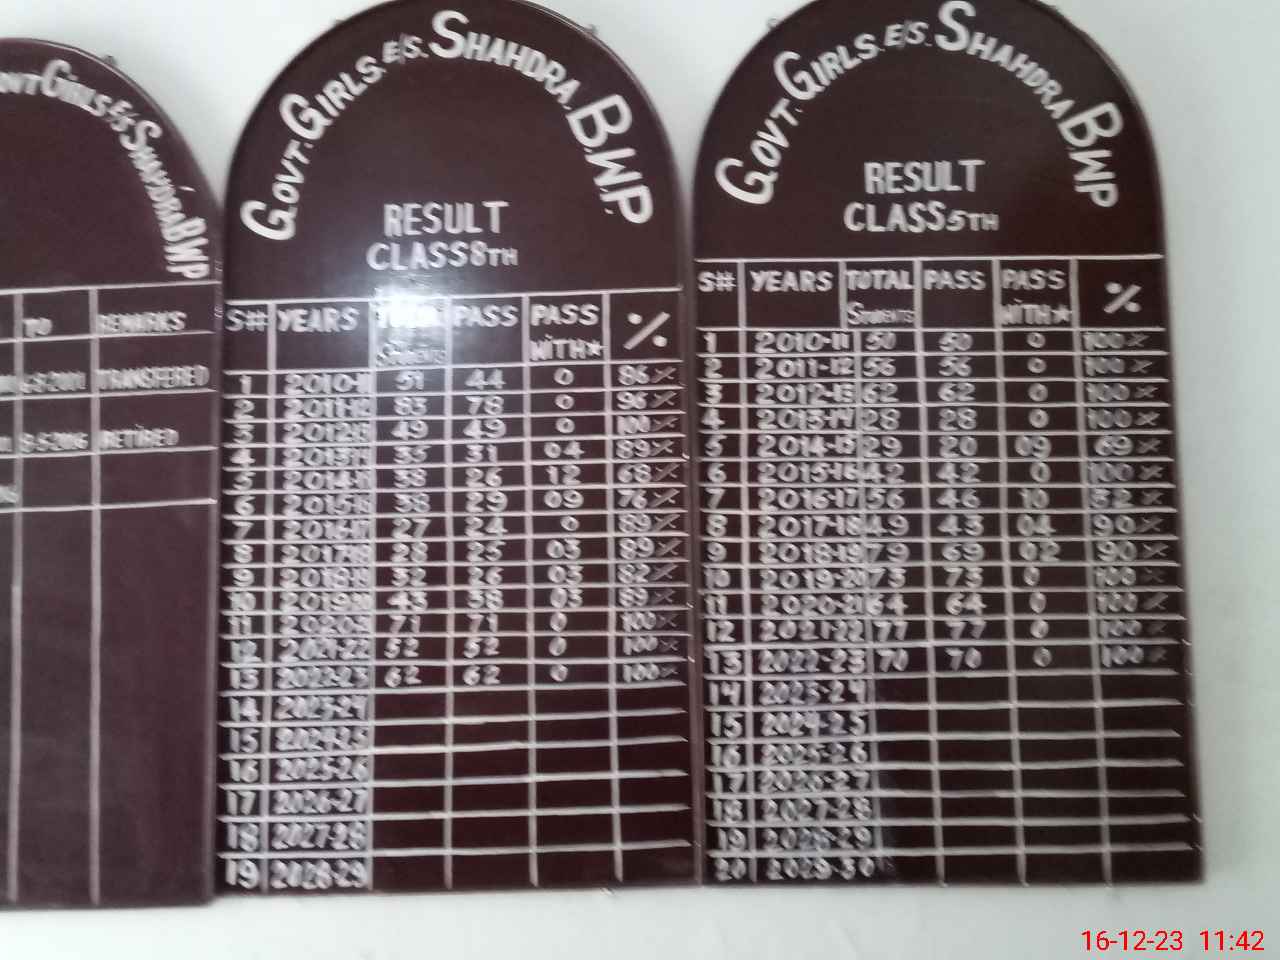 GOVT GIRLS E/S SHAHDRA BWP
TO REMARKS
6-8-2011 TRANSFERED
8-5-2016 RETIRED
GOVT. GIRLS. E/S. SHAHDRA, B.W.P.
RESULT
CLASS 8TH
S# YEARS TOTAL STUDENTS PASS PASS WITH★ %
1 2010-11 51 44 0 86%
2 2011-12 83 78 0 96%
3 2012-13 49 49 0 100%
4 2013-14 35 31 04 89%
5 2014-15 38 26 12 68%
6 2015-16 38 29 09 76%
7 2016-17 27 24 0 89%
8 2017-18 28 25 03 89%
9 2018-19 32 26 03 82%
10 2019-20 43 38 03 89%
11 2020-21 71 71 0 100%
12 2021-22 52 52 0 100%
13 2022-23 62 62 0 100%
14 2023-24
15 2024-25
16 2025-26
17 2026-27
18 2027-28
19 2028-29
GOVT. GIRLS. E/S. SHAHDRA BWP
RESULT
CLASS 5TH
S# YEARS TOTAL STUDENTS PASS PASS WITH★ %
1 2010-11 50 50 0 100%
2 2011-12 56 56 0 100%
3 2012-13 62 62 0 100%
4 2013-14 28 28 0 100%
5 2014-15 29 20 09 69%
6 2015-16 42 42 0 100%
7 2016-17 56 46 10 82%
8 2017-18 49 43 04 90%
9 2018-19 79 69 02 90%
10 2019-20 73 73 0 100%
11 2020-21 64 64 0 100%
12 2021-22 77 77 0 100%
13 2022-23 70 70 0 100%
14 2023-24
15 2024-25
16 2025-26
17 2026-27
18 2027-28
19 2028-29
20 2029-30
16-12-23 11:42